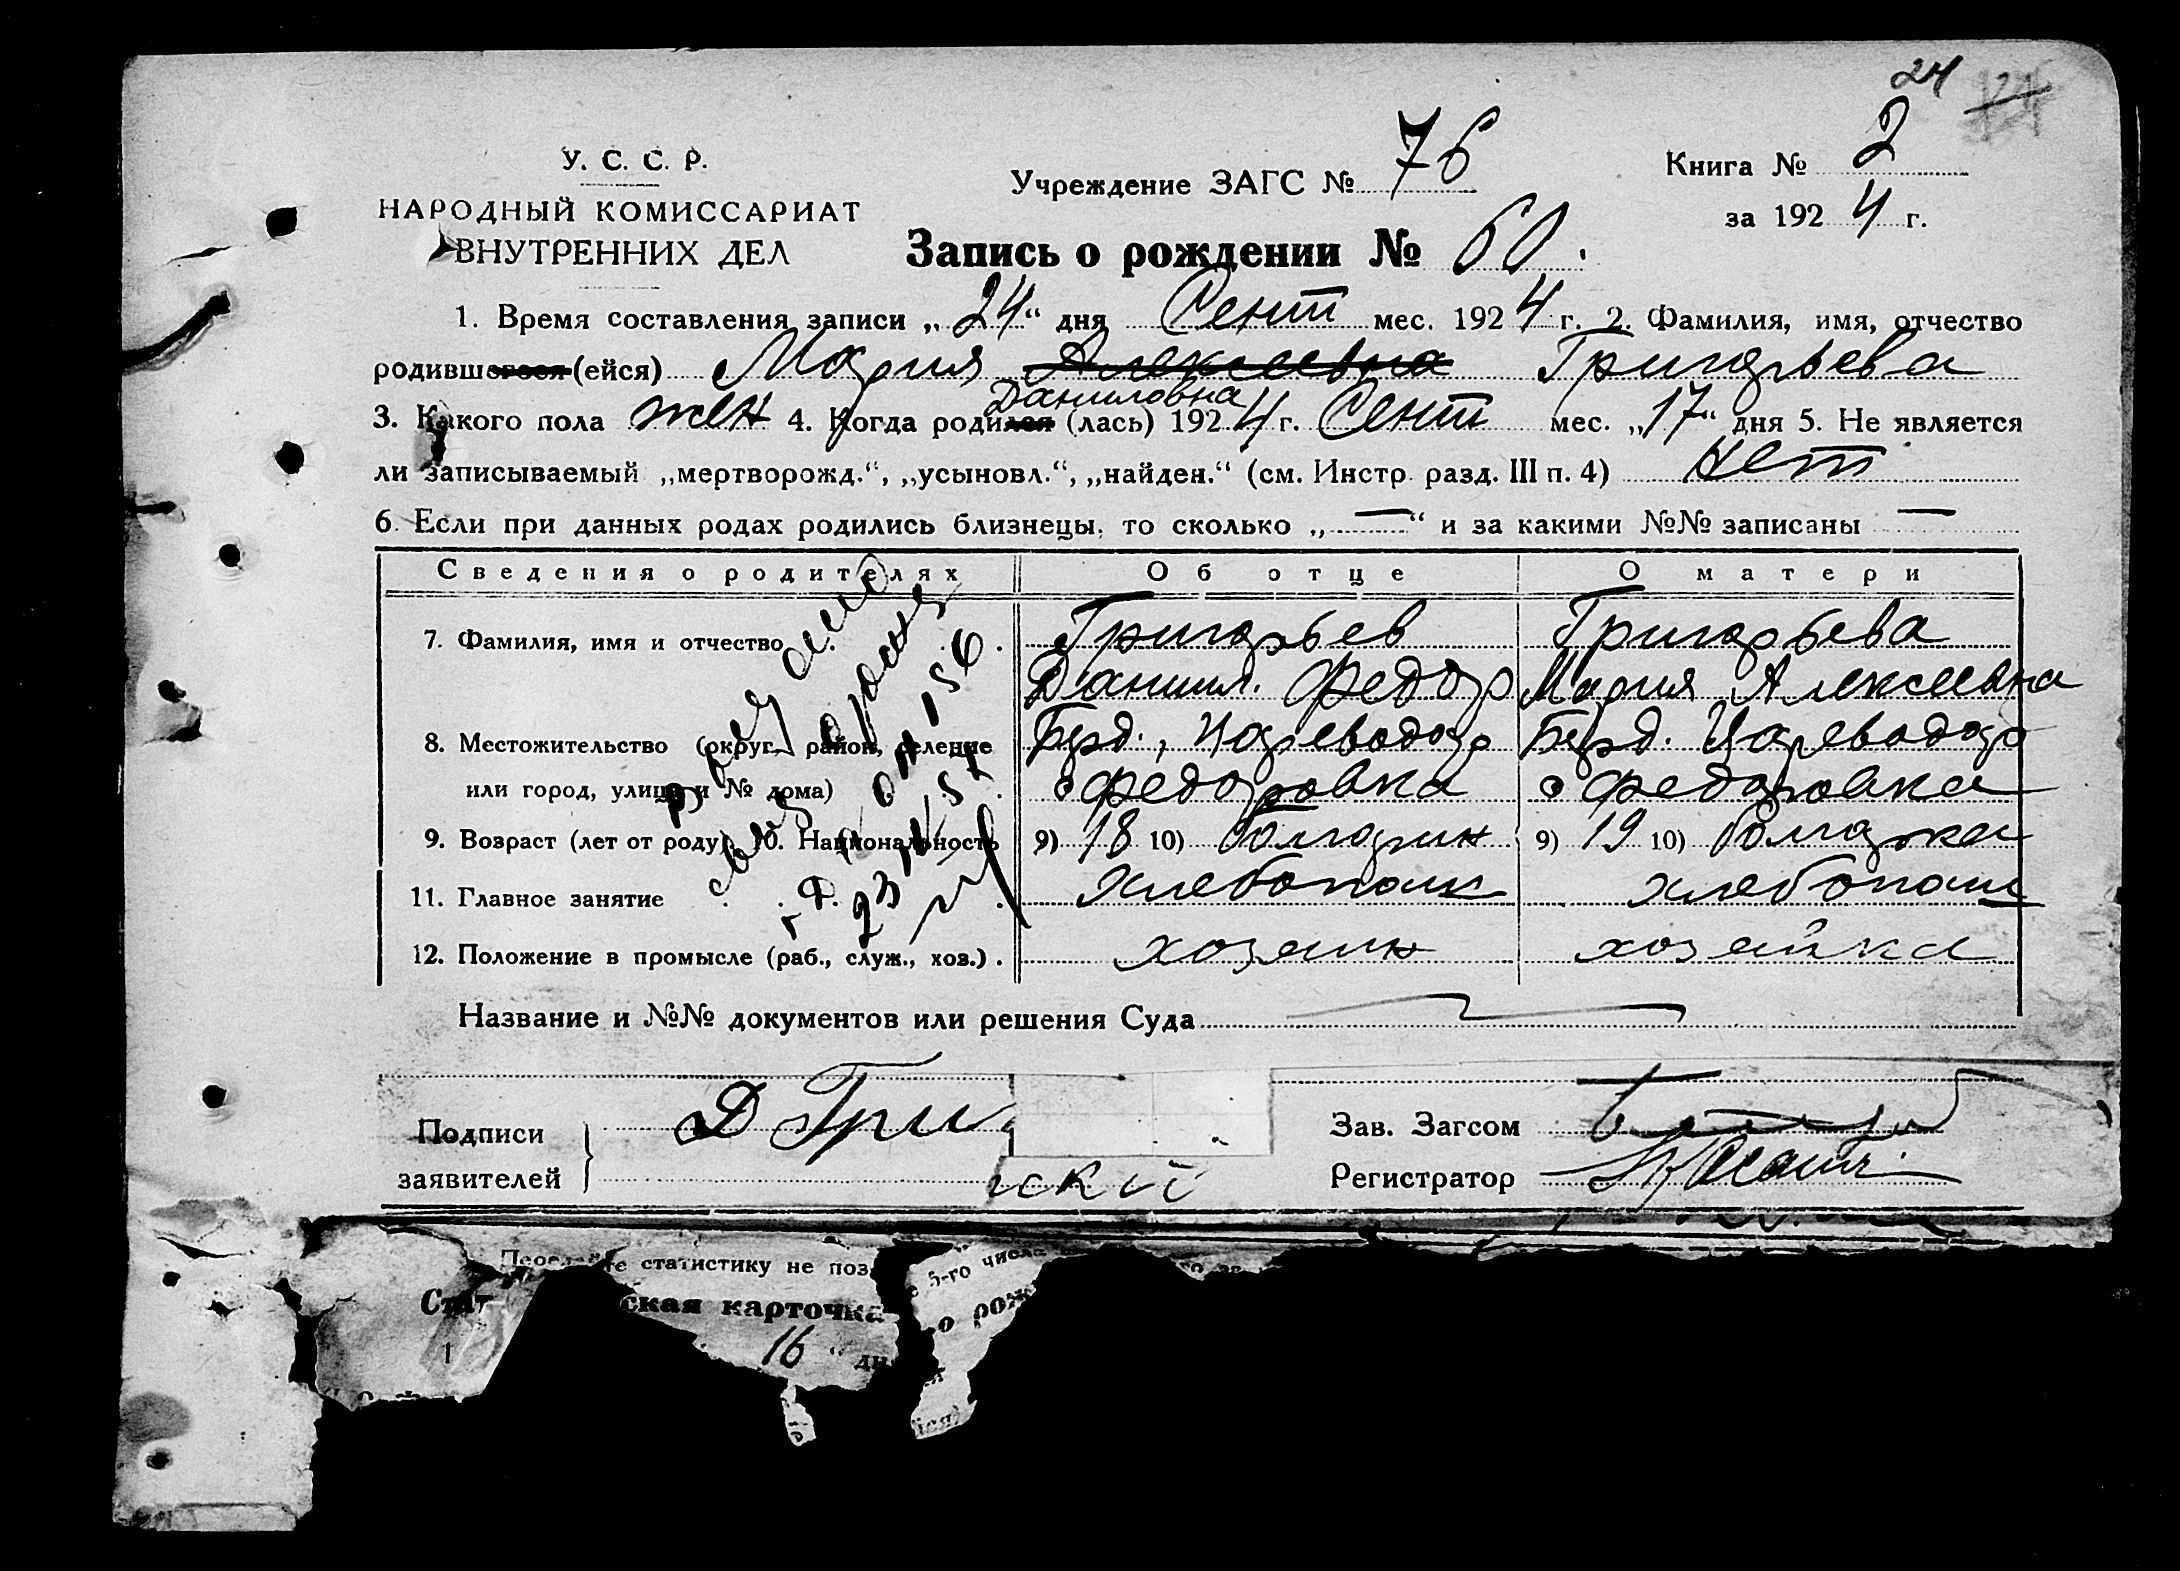 24
У. С. С. Р.
НАРОДНЫЙ КОМИССАРИАТ
ВНУТРЕННИХ ДЕЛ
Учреждение ЗАГС № 76
Книга № 2
за 1924 г.
Запись о рождении № 60.
1. Время составления записи „24“ дня Сент мес. 1924 г. 2. Фамилия, имя, отчество
родившегося (ейся) Мария Алексеевна Григорьева
Даниловна
3. Какого пола жен 4. Когда родился (лась) 1924 г. Сент мес. „17“ дня 5. Не является
ли записываемый „мертворожд.“, „усыновл.“, „найден.“ (см. Инстр. разд. III п. 4) нет
6. Если при данных родах родились близнецы, то сколько „—“ и за какими №№ записаны —
Сведения о родителях Об отце О матери
7. Фамилия, имя и отчество Григорьев Григорьева
Данил. Федор Мария Алексеевна
8. Местожительство (округ, район, селение Берд., Цареводар Берд. Цареводар
или город, улица и № дома) с Федоровка с Федоровка
9. Возраст (лет от роду) 10. Национальность 9) 18 10) болгарин 9) 19 10) болгарка
11. Главное занятие Хлебопаш хлебопаш
12. Положение в промысле (раб., служ., хоз.) хозяин хозяйка
Название и №№ документов или решения Суда
Подписи заявителей Д Гри
ский
Зав. Загсом
Регистратор
статистику не поз
5-го числа
Стат ская карточка
о рож
1 16 “ дн